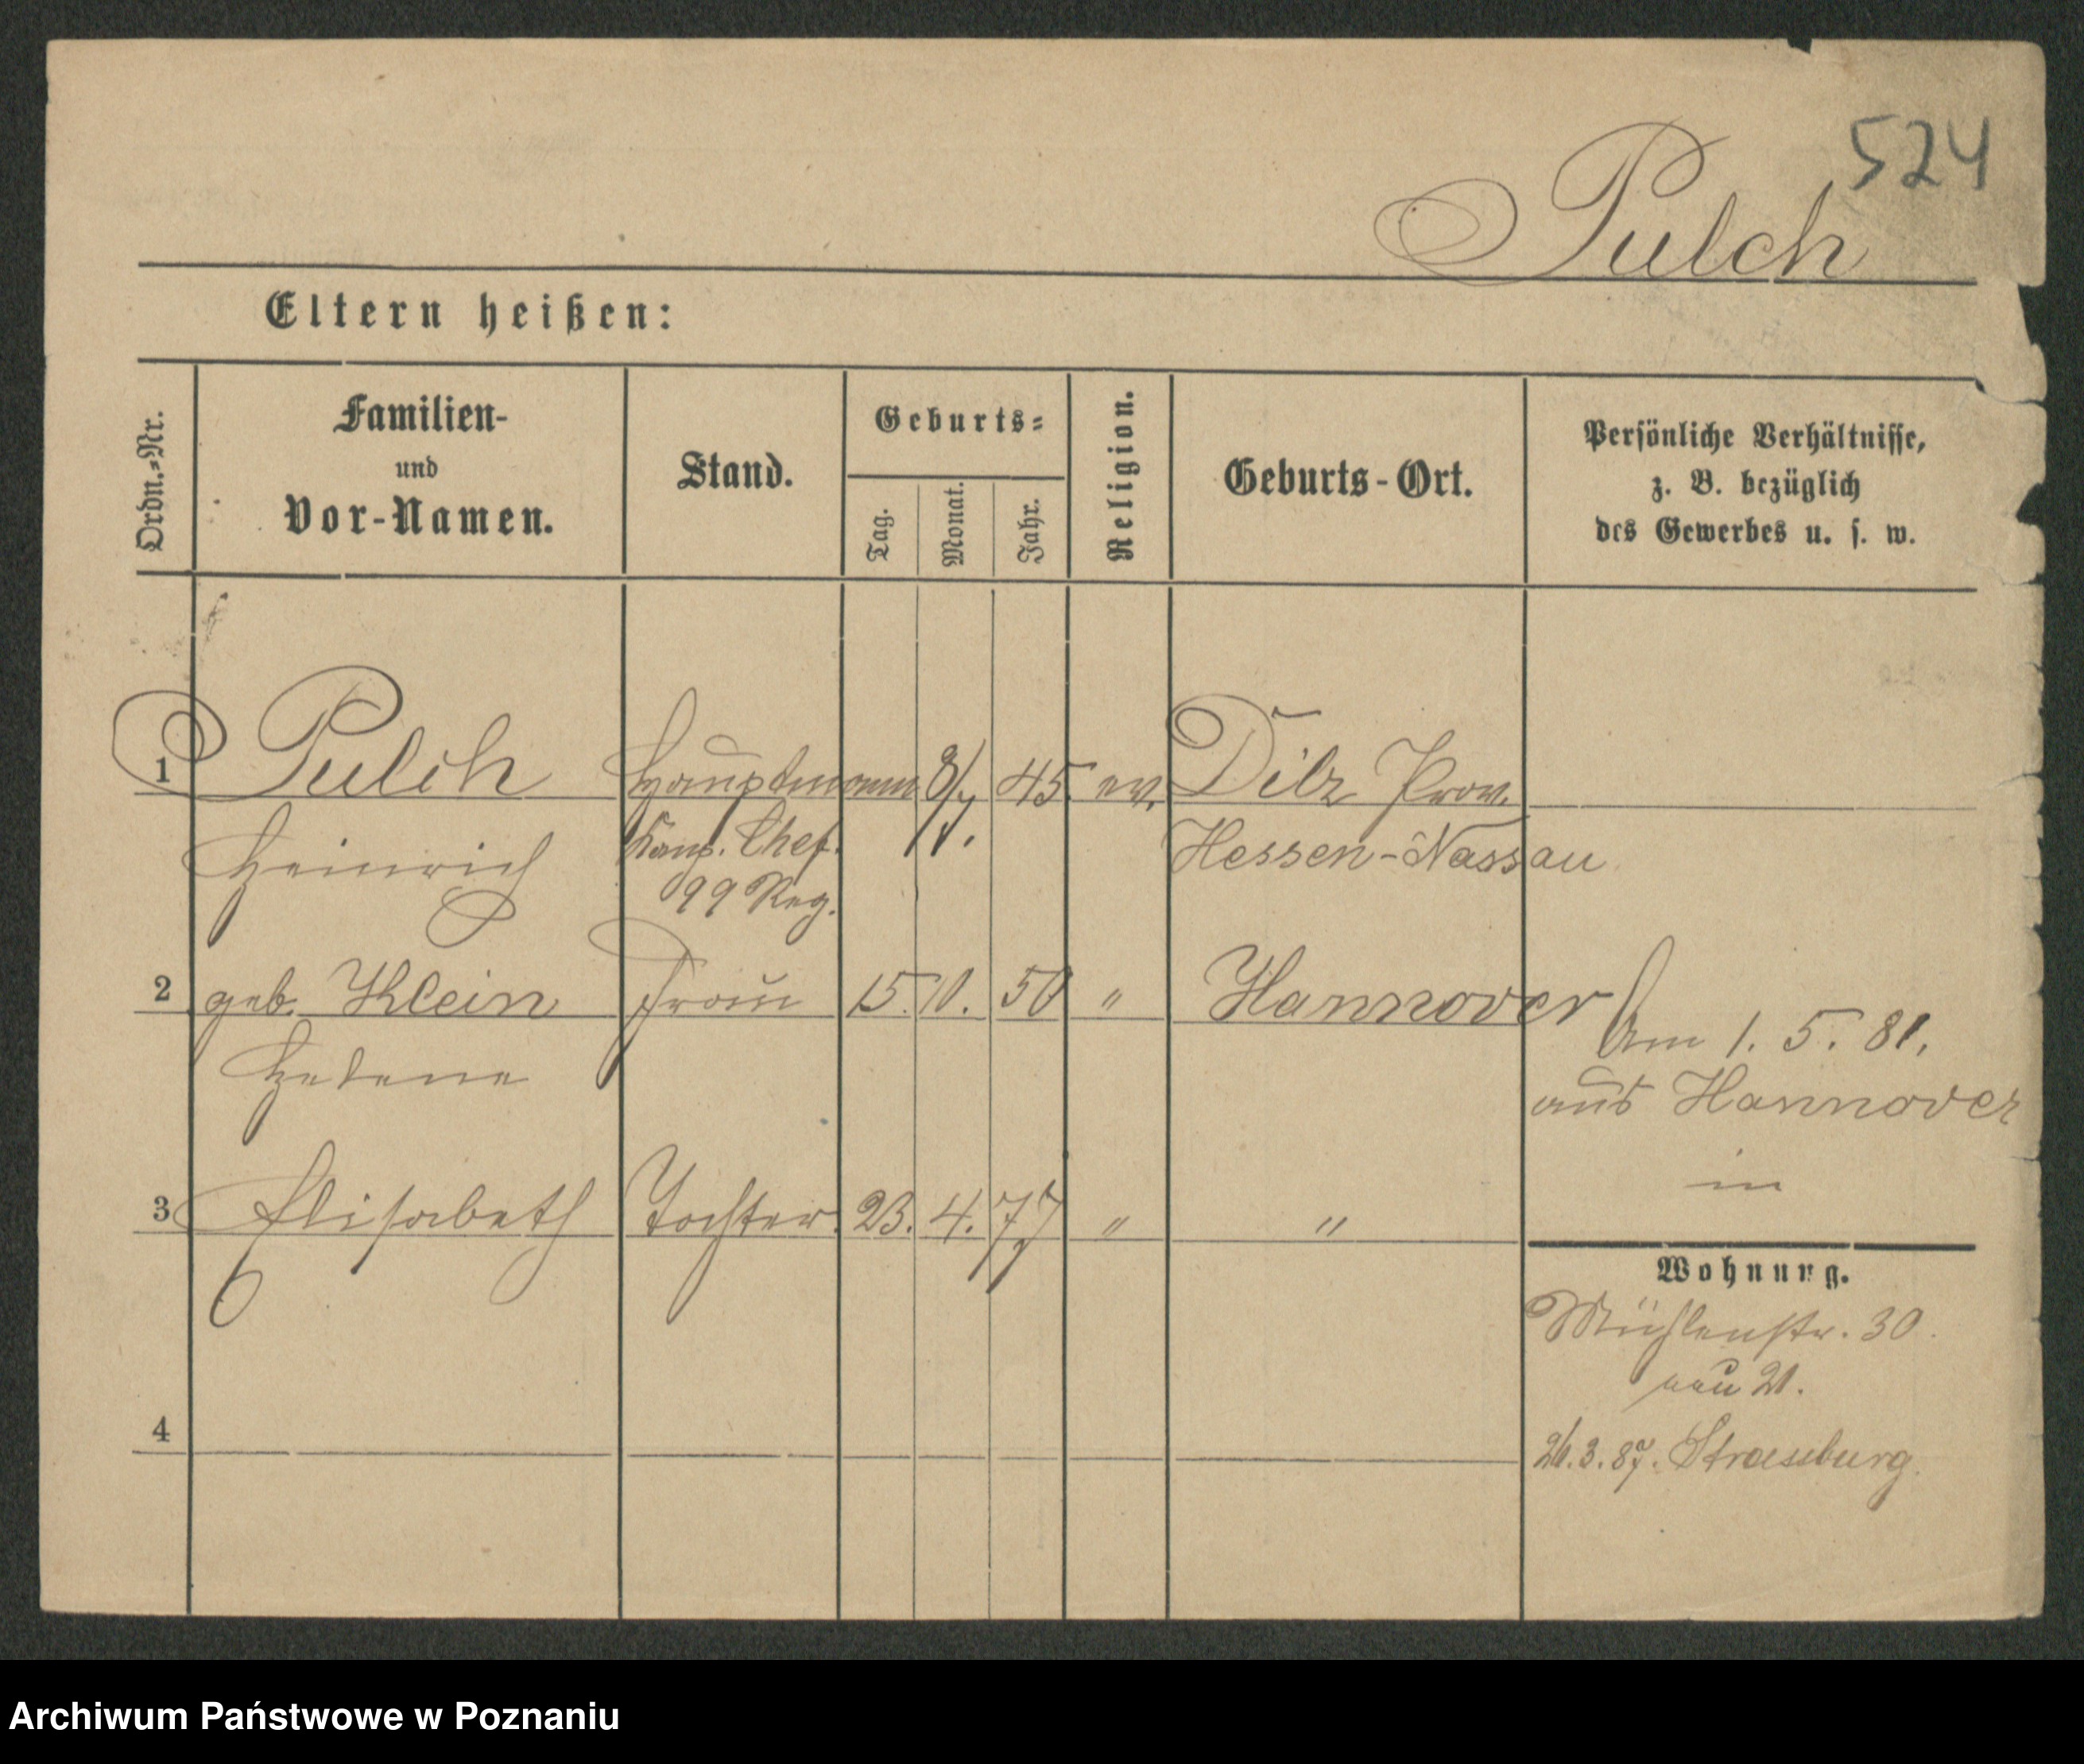 524
Pulch
Eltern heißen:
Ordn.-Nr.
Familien-
und
Vor-Namen.
Stand.
Geburts-
Tag.
Monat.
Jahr.
Religion.
Geburts-Ort.
Persönliche Verhältnisse,
z. B. bezüglich
des Gewerbes u. s. w.
1 Pulch Hauptmann 8/7 45. ev. Dilz Prov.
Heinrich Komp. Chef. Hessen-Nassau
99 Reg.
2 geb. Klein Frau 15. 10. 50 " Hannover
Helene
Am 1. 5. 81.
aus Hannover
in
3 Elisabeth Tochter. 23. 4. 77 " "
Wohnung.
Mühlenstr. 30.
neu 21.
4
26.3.87. Strassburg.
Archiwum Państwowe w Poznaniu